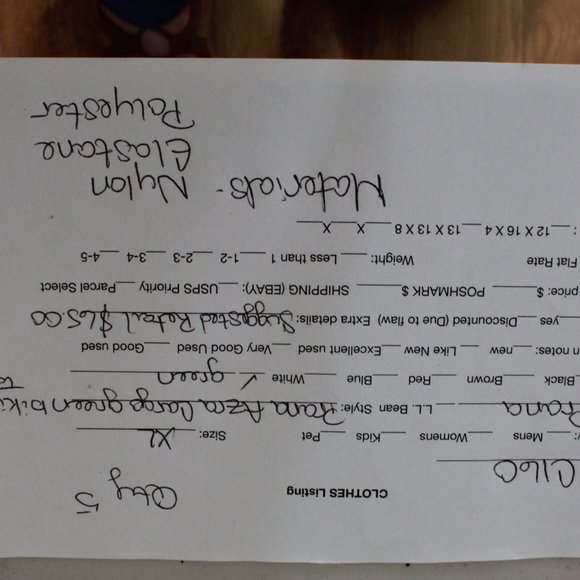 CLOTHES Listing Qty 5
C160
: ___Mens ___Womens ___Kids ___Pet Size: XL
Prana ___LL Bean Style: Prana Azra large green biki
Black ___Brown ___Red ___Blue ___White ✓ green
n notes: ___new ___Like New ___Excellent used ___Very Good Used ___Good used
___yes ___Discounted (Due to flaw) Extra details: Suggested Retail $65.00
price: $___ POSHMARK $___ SHIPPING (EBAY): ___USPS Priority ___Parcel Select
Flat Rate Weight: ___Less than 1 ___1-2 ___2-3 ___3-4 ___4-5
: ___12 X 16 X 4 ___13 X 13 X 8 ___X___X___
Materials - Nylon
Elastane
Polyester